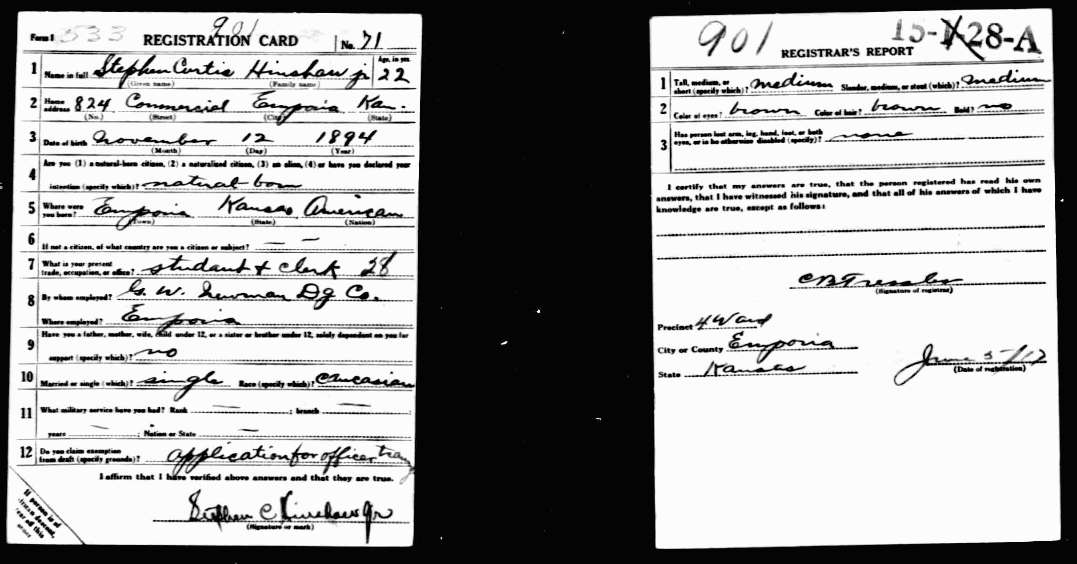 Form 1 533 901 REGISTRATION CARD No. 71
1 Name in full Stephen Curtis Hinshaw jr 22 Age, in yrs
(Given name) (Family name)
2 Home address 824 Commercial Emporia Kan.
(No.) (Street) (City) (State)
3 Date of birth November 12 1894
(Month) (Day) (Year)
4 Are you (1) a natural-born citizen, (2) a naturalized citizen, (3) an alien, (4) or have you declared your
intention (specify which)? natural born
5 Where were you born? Emporia Kansas American
(Town) (State) (Nation)
6 If not a citizen, of what country are you a citizen or subject? — —
7 What is your present trade, occupation, or office? studant + clerk 28
8 By whom employed? G. W. Newman Dg Co.
Where employed? Emporia
9 Have you a father, mother, wife, child under 12, or a sister or brother under 12, solely dependent on you for
support (specify which)? no
10 Married or single (which)? single Race (specify which)? Caucasian
11 What military service have you had? Rank — ; branch — ;
years — ; Nation or State —
12 Do you claim exemption from draft (specify grounds)? application for officer traing
I affirm that I have verified above answers and that they are true.
Stephen C Hinshaw Jr
(Signature or mark)
If person is of
descent,
off this
901 15-1-28-A
REGISTRAR'S REPORT
1 Tall, medium, or short (specify which)? medium Slender, medium, or stout (which)? medium
2 Color of eyes? brown Color of hair? brown Bald? no
3 Has person lost arm, leg, hand, foot, or both eyes, or is he otherwise disabled (specify)? none
I certify that my answers are true, that the person registered has read his own
answers, that I have witnessed his signature, and that all of his answers of which I have
knowledge are true, except as follows:
C B Tressler
(Signature of registrar)
Precinct 4 Ward
City or County Emporia
State Kansas June 5-/17
(Date of registration)